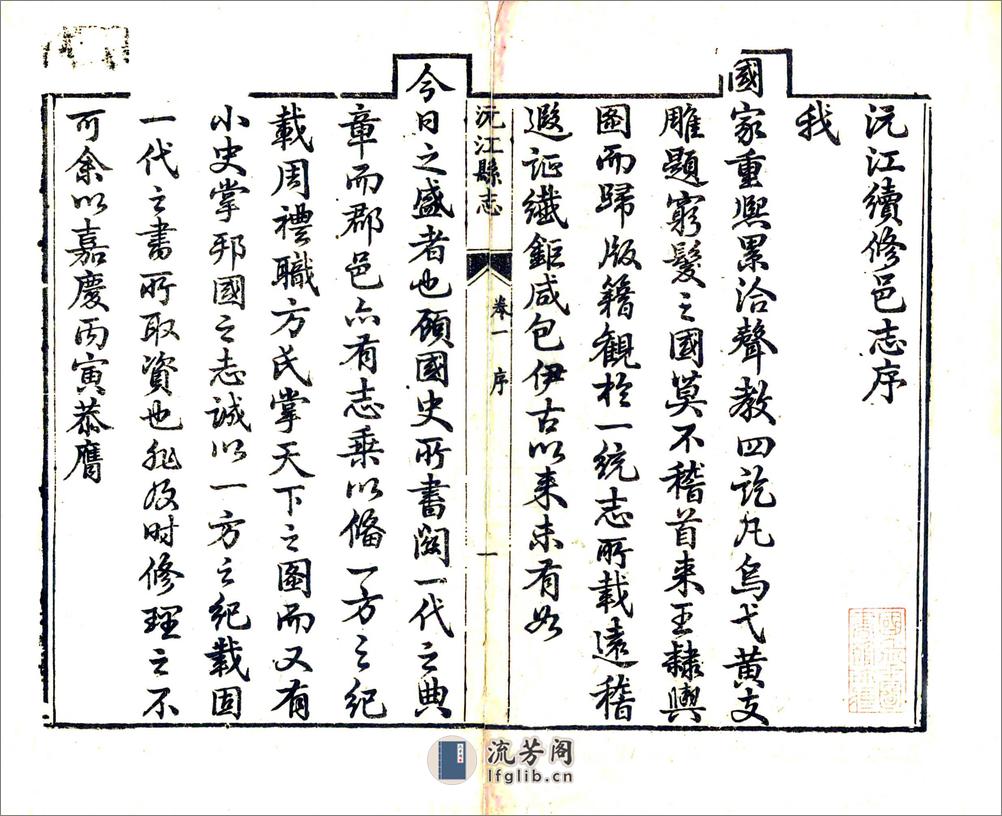 沅江續修邑志序
我
國家重熙累洽聲教四訖凡烏弋黃支
雕題窮髮之國莫不稽首来王隸輿
圖而歸版籍観於一統志所載遠稽
遐証纖鉅咸包伊古以来未有如
沅江縣志
卷一 序
一
今日之盛者也顧國史所書闗一代之典
章而郡邑亦有志乗以備一方之紀
載周禮職方氏掌天下之圖而又有
小史掌邦國之志誠以一方之紀載固
一代之書所取資也非及时修理之不
可余以嘉慶丙寅恭膺
流芳阁
lfglib.cn